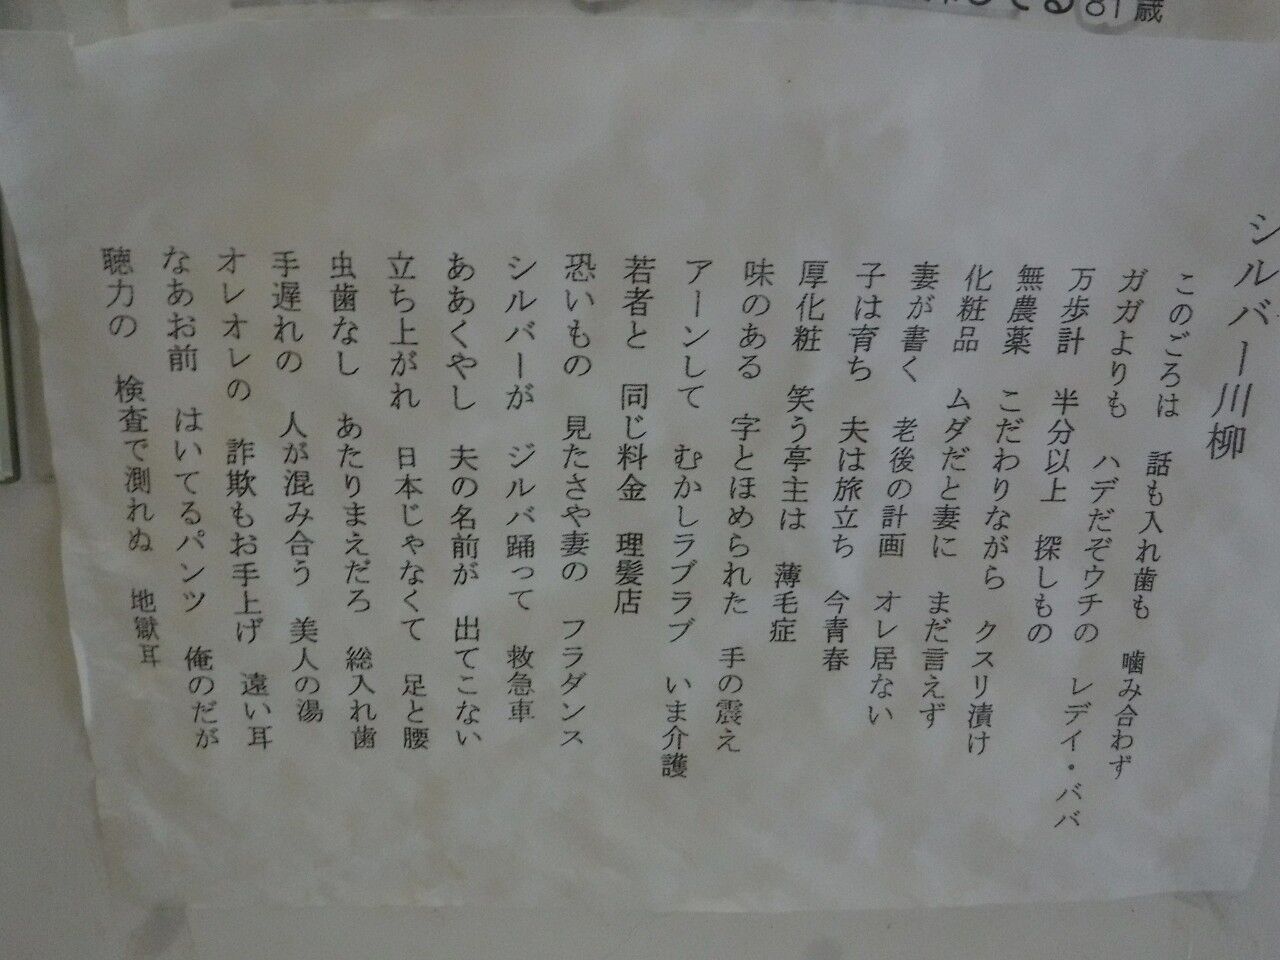 してる81歳
シルバー川柳
このごろは 話も入れ歯も 噛み合わず
ガガよりも ハデだぞウチの レデイ・ババ
万歩計 半分以上 探しもの
無農薬 こだわりながら クスリ漬け
化粧品 ムダだと妻に まだ言えず
妻が書く 老後の計画 オレ居ない
子は育ち 夫は旅立ち 今青春
厚化粧 笑う亭主は 薄毛症
味のある 字とほめられた 手の震え
アーンして むかしラブラブ いま介護
若者と 同じ料金 理髪店
恐いもの 見たさや妻の フラダンス
シルバーが ジルバ踊って 救急車
ああくやし 夫の名前が 出てこない
立ち上がれ 日本じゃなくて 足と腰
虫歯なし あたりまえだろ 総入れ歯
手遅れの 人が混み合う 美人の湯
オレオレの 詐欺もお手上げ 遠い耳
なあお前 はいてるパンツ 俺のだが
聴力の 検査で測れぬ 地獄耳